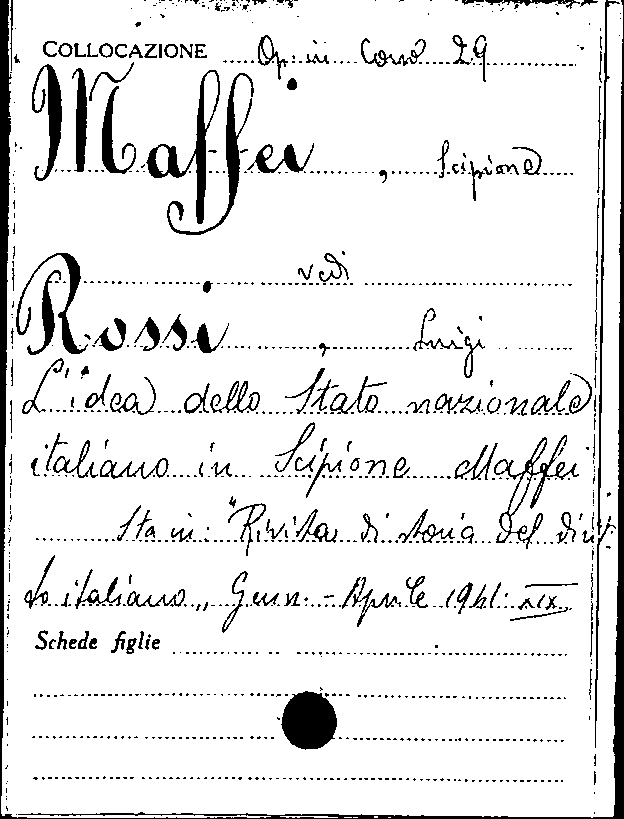 COLLOCAZIONE Op. in Corso 29
Maffei, Scipione
vedi
Rossi, Luigi
L'idea dello Stato nazionale
italiano in Scipione Maffei
Sta in: "Rivista di storia del dirit-
to italiano„ Genn. - Aprile 1941. XIX
Schede figlie